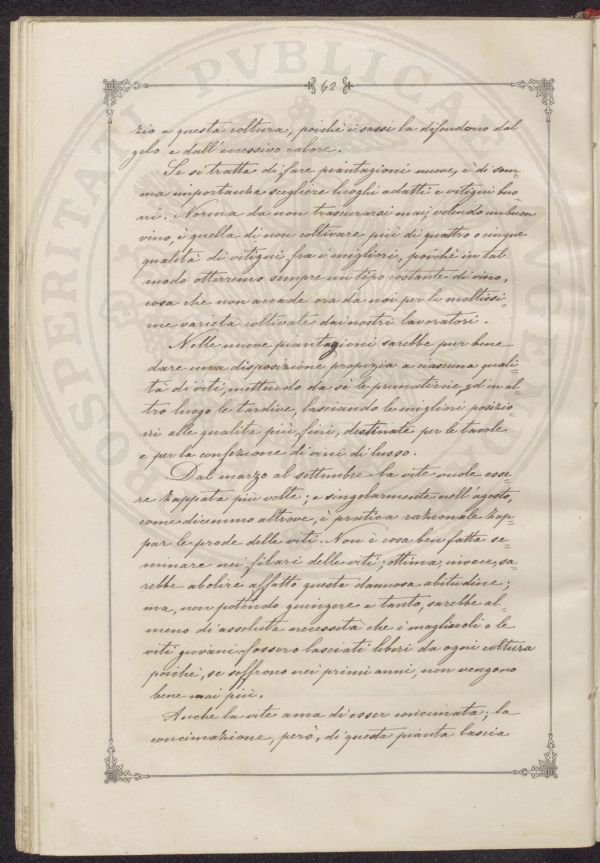 62
zio a questa coltura, poichè i sassi la difendono dal
gelo e dall'eccessivo calore.
Se si tratta di fare piantagioni nuove, è di som
ma importanza scegliere luoghi adatti e vitigni buo
ni. Norma da non trascurarsi mai, volendo un buon
vino, è quella di non coltivare più di quattro o cinque
qualità di vitigni fra i migliori, poichè in tal
modo otterremo sempre un tipo costante di vino,
cosa che non accade ora da noi per le moltissi=
me varietà coltivate dai nostri lavoratori.
Nelle nuove piantagioni sarebbe pur bene
dare una disposizione propizia a ciascuna quali=
tà di viti, mettendo da sè le primaticcie, ed in al
tro luogo le tardive, lasciando le migliori posizio
ni alle qualità più fini, destinate per le tavole
e per la confezione di vini di lusso.
Dal marzo al settembre la vite vuole esse=
re zappata più volte; e singolarmente nell'agosto,
come dicemmo altrove, è pratica razionale zap=
par le prode delle viti. Non è cosa ben fatta se=
minare nei filari delle viti; ottima, invece, sa=
rebbe abolire affatto questa dannosa abitudine;
ma, non potendo giungere a tanto, sarebbe al=
meno di assoluta necessità che i magliuoli o le
viti giovani fossero lasciati liberi da ogni coltura
poichè, se soffrono nei primi anni, non vengono
bene mai più.
Anche la vite ama di esser concimata; la
concimazione, però, di questa pianta lascia